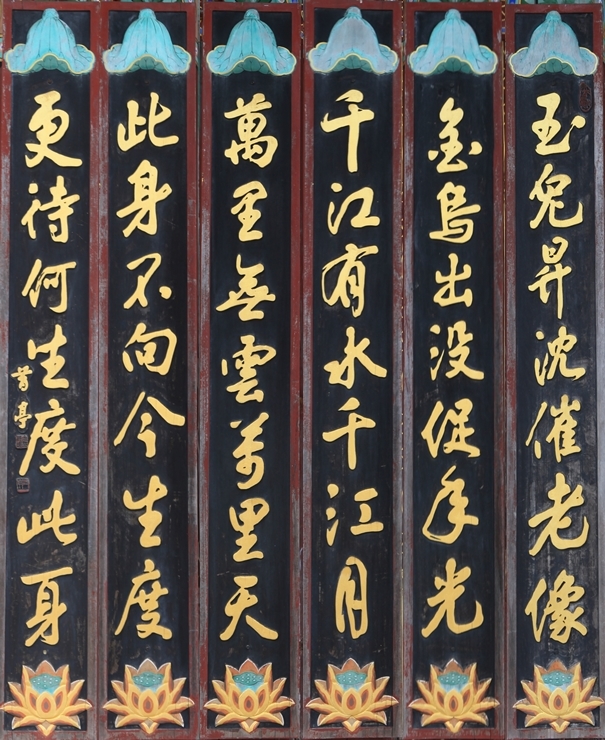 玉兔昇沈催老像
金烏出没促年光
千江有水千江月
萬里無雲萬里天
此身不向今生度
更待何生度此身